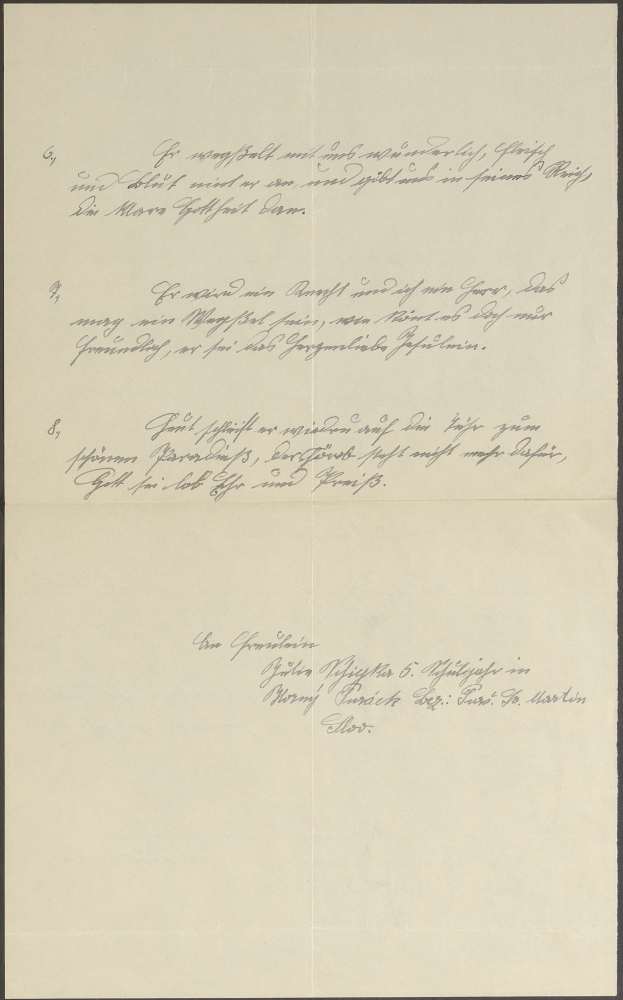 6, Er wegßelt mit uns wunderlich, Fleisch
und Blut nimt er an, und gibt uns in seines Reich,
die klare Gottheit dan.
7, Er wird ein Knecht und ich ein Herr, das
mag ein Wegßel sein, wie könt es doch nur
freundlich, er sei das herzenliebe Jesulein.
8, Heut schleist er wieder auf die Tühr zum
schönen Paradieß, der Chörob steht nicht mehr dafür,
Gott sei lob Ehr und Preiß.
An Freulein
Julie 5. Schuljahr in
Horný Turček Bez.: Turč. Sv. Martin
Slov.